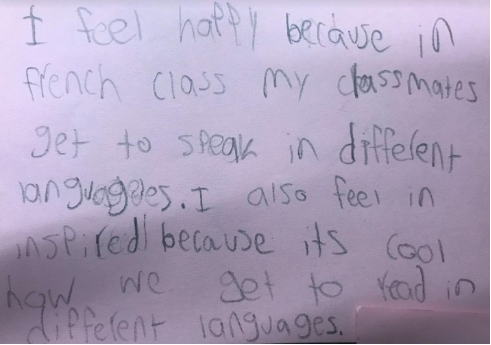 I feel happy because in
french class my classmates
get to speak in different
languageles. I also feel in
inspired because its cool
how we get to read in
different languages.